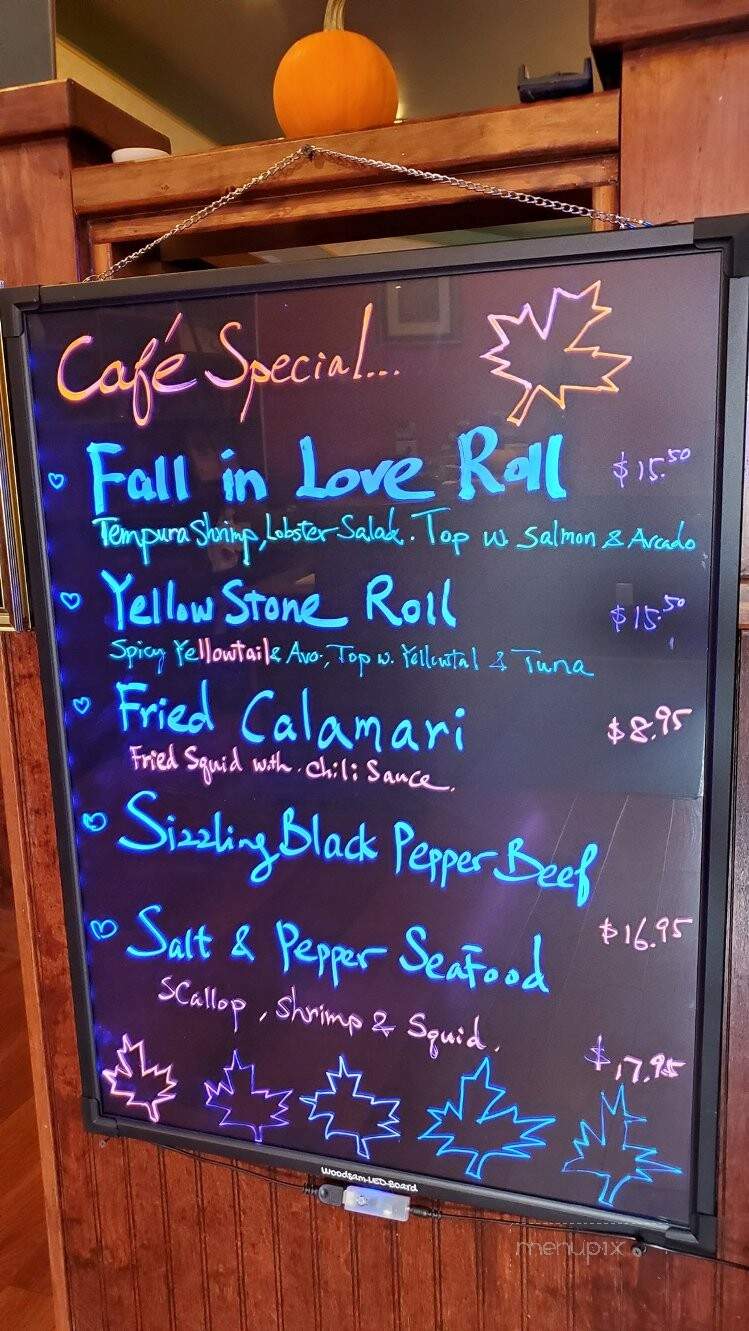 Café Special...
Fall in Love Roll $15.50
Tempura Shrimp, Lobster Salad. Top w. Salmon & Avcado
Yellow Stone Roll $15.50
Spicy Yellowtail & Avo., Top w. Yellowtal & Tuna
Fried Calamari $8.95
Fried Squid with. Chili Sauce.
Sizzling Black Pepper Beef
$16.95
Salt & Pepper Seafood
Scallop, Shrimp & Squid.
$17.95
Woodsam-LED-Board
menupix